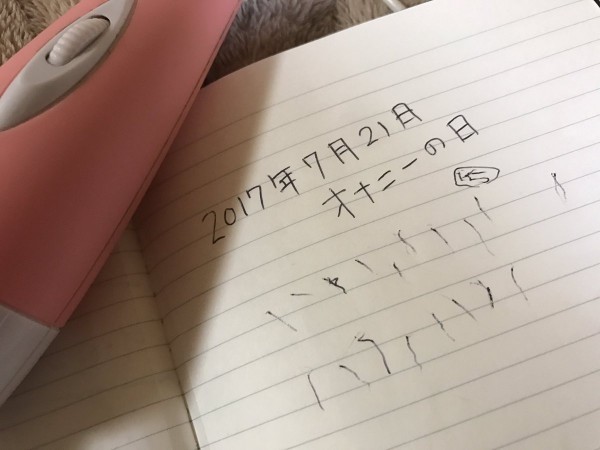 2017年7月21日
オナニーの日